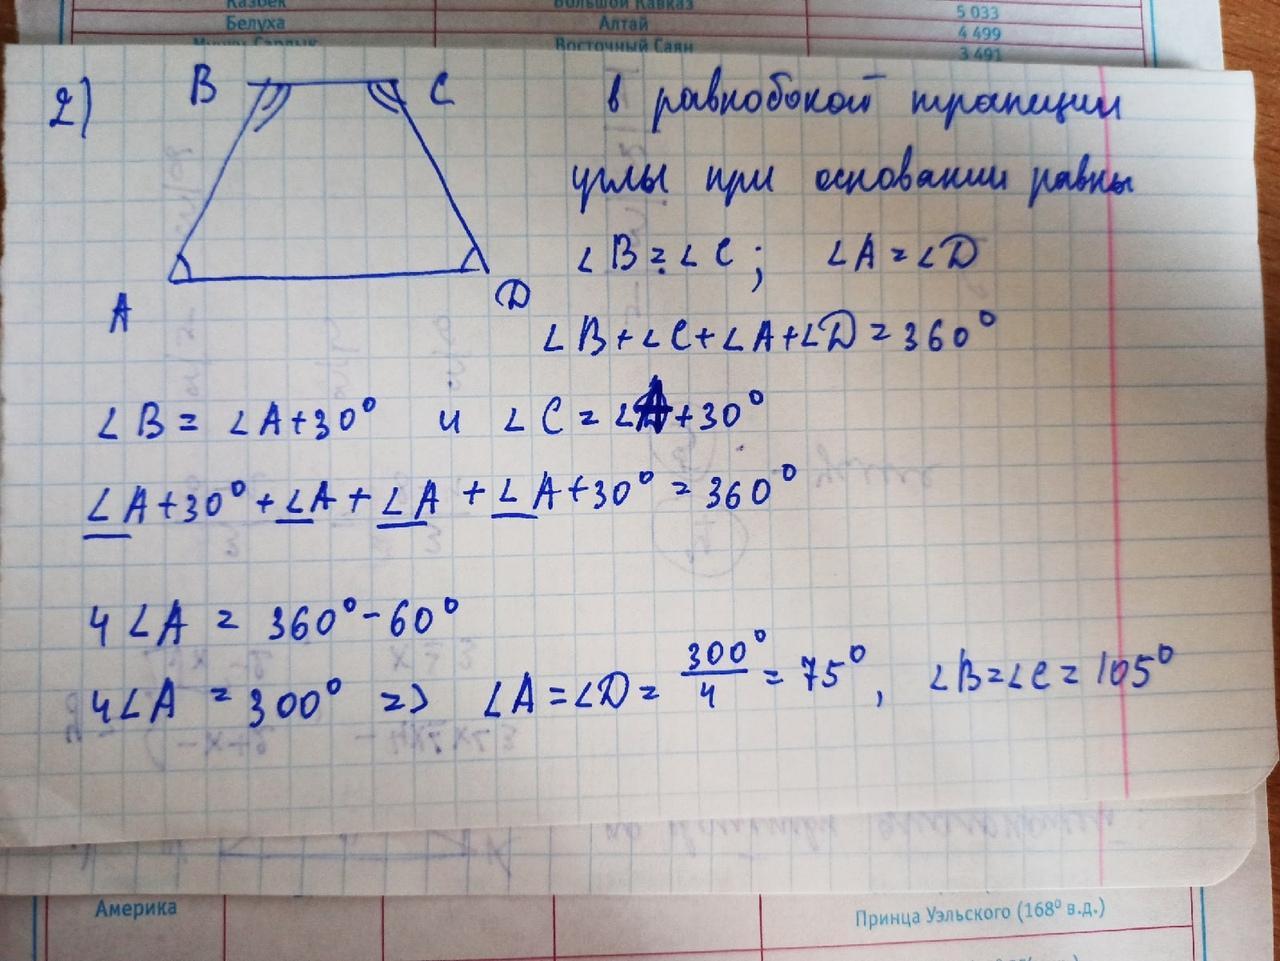 Казбек Большой Кавказ 5 033
Белуха Алтай 4 499
Восточный Саян 3 491
2) B C в равнобокой трапеции
углы при основании равны
∠B = ∠C; ∠A = ∠D
A D
∠B + ∠C + ∠A + ∠D = 360°
∠B = ∠A + 30° и ∠C = ∠A + 30°
∠A + 30° + ∠A + ∠A + ∠A + 30° = 360°
4∠A = 360° - 60°
4∠A = 300° => ∠A = ∠D = 300°/4 = 75°, ∠B = ∠C = 105°
Америка
Принца Уэльского (168° в.д.)